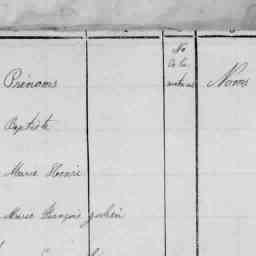 Prénoms
No
de la
maison
Noms
Baptiste
Marie Henri
Marie François Julien